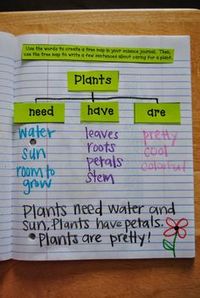 Use the words to create a tree map in your science journal. Then,
use the tree map to write a few sentences about caring for a plant.
Plants
need have are
water leaves pretty
sun roots cool
room to petals colorful
grow stem
Plants need water and
sun. Plants have petals.
Plants are pretty!